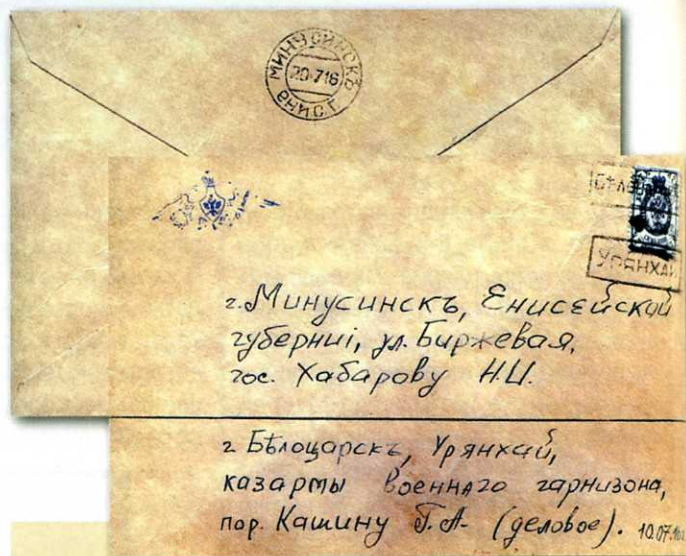 МИНУСИНСКЪ
20·7·16
ЕНИС. Г.
УРЯНХАЙ
г. Минусинскъ, Енисейской
губерниі, ул. Биржевая,
гос. Хабарову Н.И.
г Бѣлоцарскъ, Урянхай,
казармы военнаго гарнизона,
пор. Кашину Г.А- (деловое).